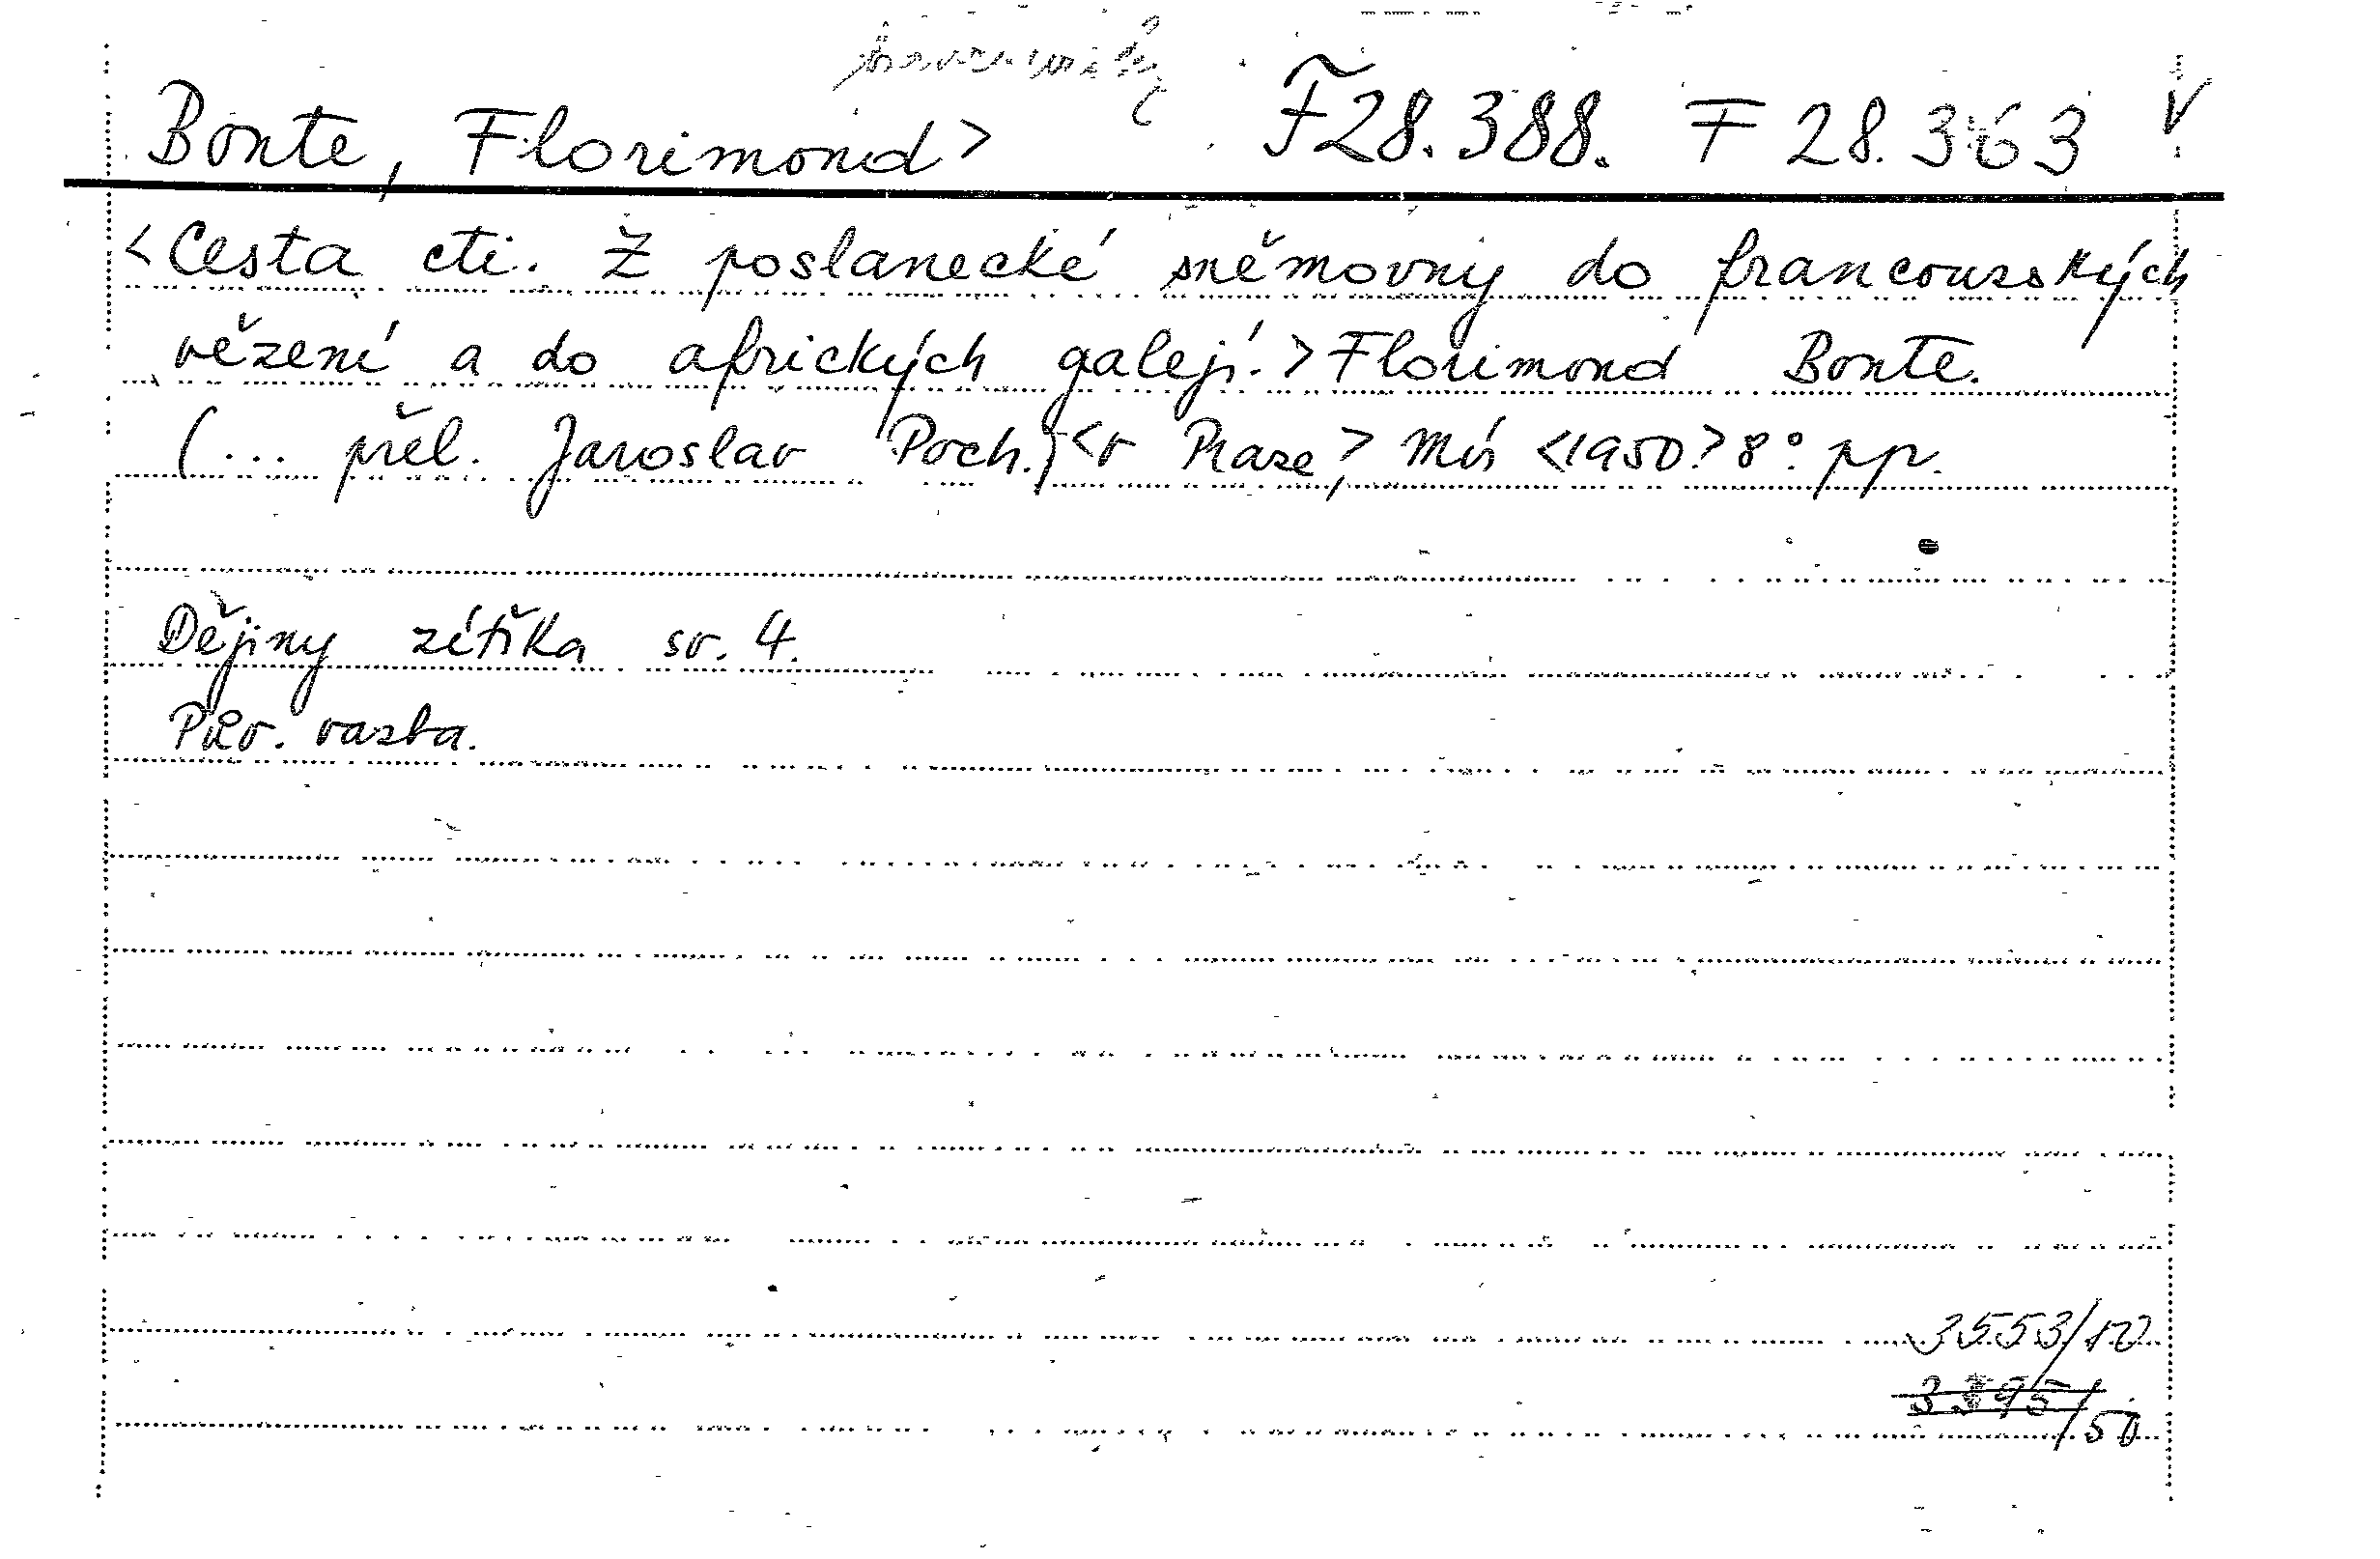 Bonte, Florimond> F28.388. F 28.363 V
<Cesta cti. Z poslanecké sněmovny do francouzských
vězení a do afrických galejí.> Florimond Bonte.
(... přel. Jaroslav Poch.) <v Praze,> Mír <1950> 8° pp.
Dějiny zítřka sv. 4.
Pův. vazba.
3553/50
3395/50